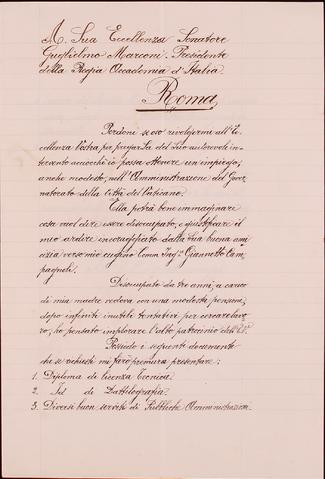 A Sua Eccellenza Senatore
Guglielmo Marconi. Presidente
della Regia Accademia d'Italia
Roma
Perdoni se oso rivolgermi all'Ec-
cellenza Vostra per pregarLa del Suo autorevole in-
tervento acciocchè io possa ottenere un impiego,
anche modesto, nell'Amministrazione del Gover
natorato della Città del Vaticano.
Ella potrà bene immaginare
cosa vuol dire essere disoccupato, e giustificare il
mio ardire incoraggiato dalla Sua buona ami
cizia verso mio cugino Comm. Ing. Giannetto Cam
pagnoli.
Disoccupato da tre anni, a carico
di mia madre vedova con una modesta pensione,
dopo infiniti inutili tentativi per cercare lavo
ro, ho pensato implorare l'alto patrocinio dell'
Possiedo i seguenti documenti
che se richiesti mi farò premura presentare:
1. Diploma di licenza Tecnica.
2. Id. di Dattilografia.
3. Diversi buon serviti di Pubbliche Amministrazioni.